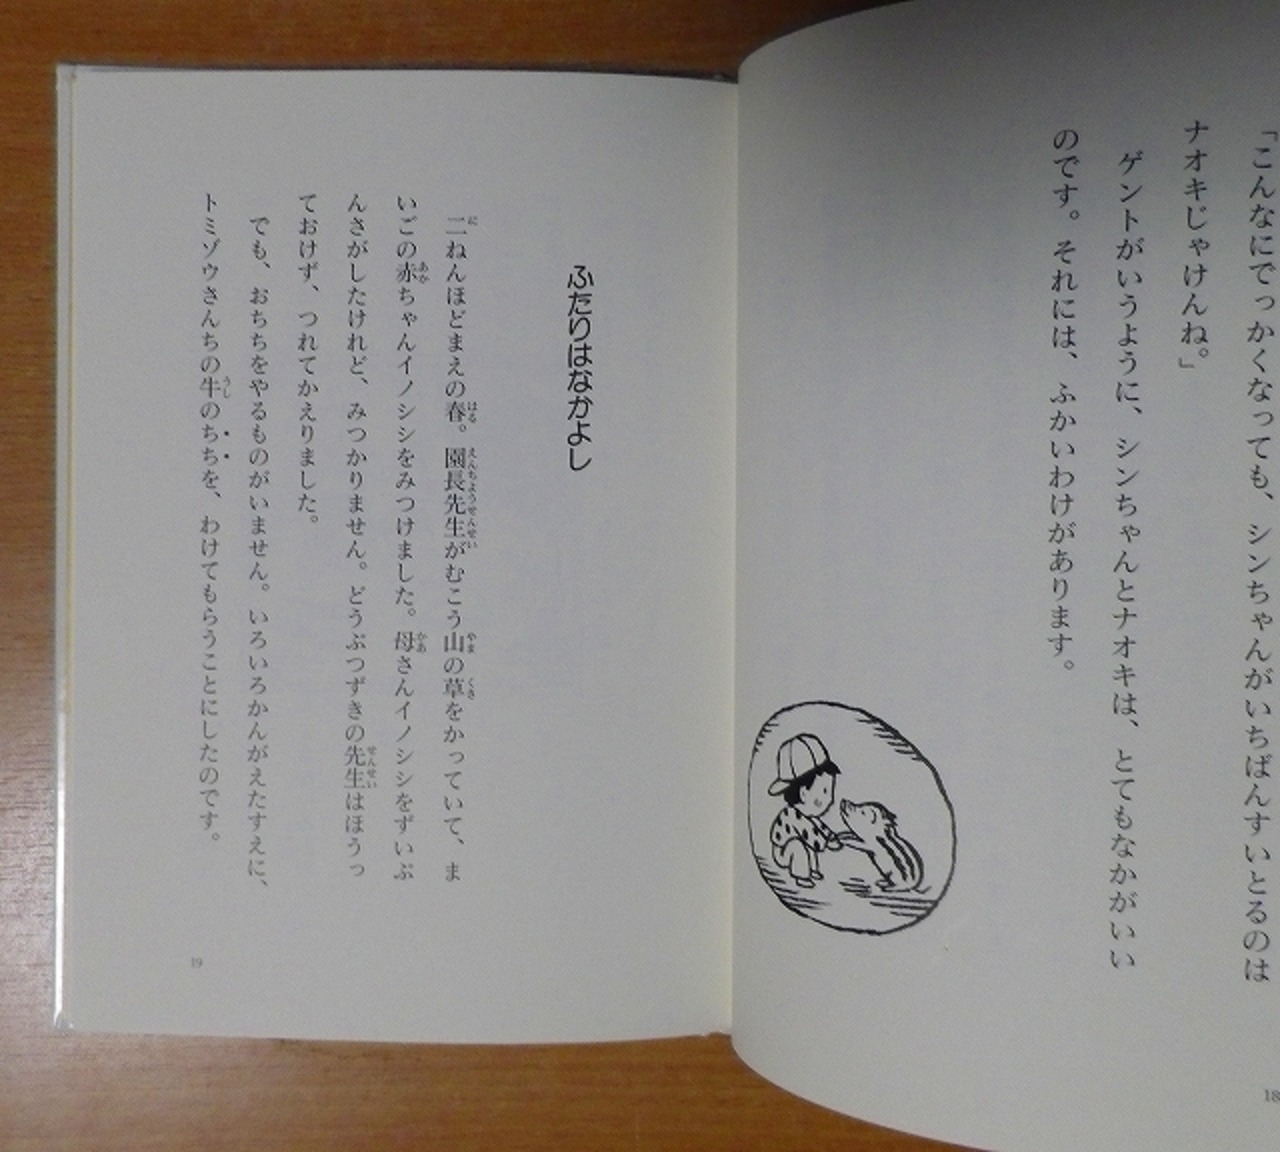 「こんなにでっかくなっても、シンちゃんがいちばんすいとるのは
ナオキじゃけんね。」
ゲントがいうように、シンちゃんとナオキは、とてもなかがいい
のです。それには、ふかいわけがあります。
18
ふたりはなかよし
二ねんほどまえの春。園長先生がむこう山の草をかっていて、ま
いごの赤ちゃんイノシシをみつけました。母さんイノシシをずいぶ
んさがしたけれど、みつかりません。どうぶつずきの先生はほうっ
ておけず、つれてかえりました。
でも、おちちをやるものがいません。いろいろかんがえたすえに、
トミゾウさんちの牛のちちを、わけてもらうことにしたのです。
19